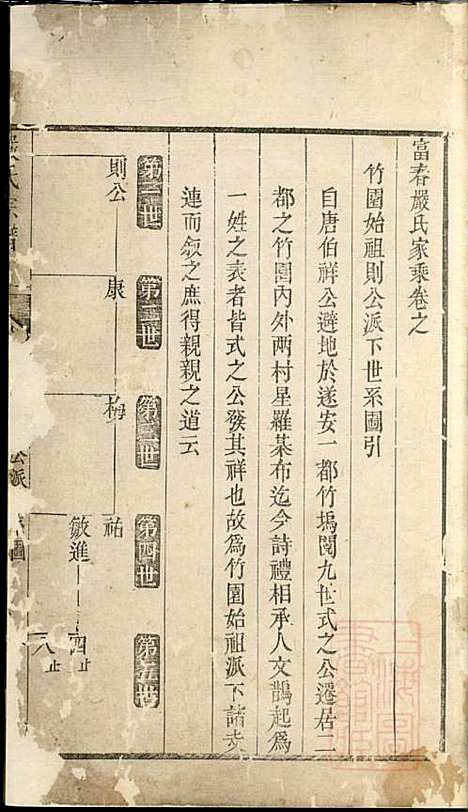 富春嚴氏家乘卷之
竹園始祖則公派下世系圖引
自唐伯祥公避地於遂安一都竹塢閱九世式之公遷居二
都之竹園內外兩村星羅棊布迄今詩禮相承人文鵲起為
一姓之表者皆式之公發其祥也故為竹園始祖派下諸
連而敘之庶得親親之道云
第一世
第二世
第三世
第四世
第五世
則公
康
梅
祐
敏進
四止
八止
氏宗譜
公派
圖